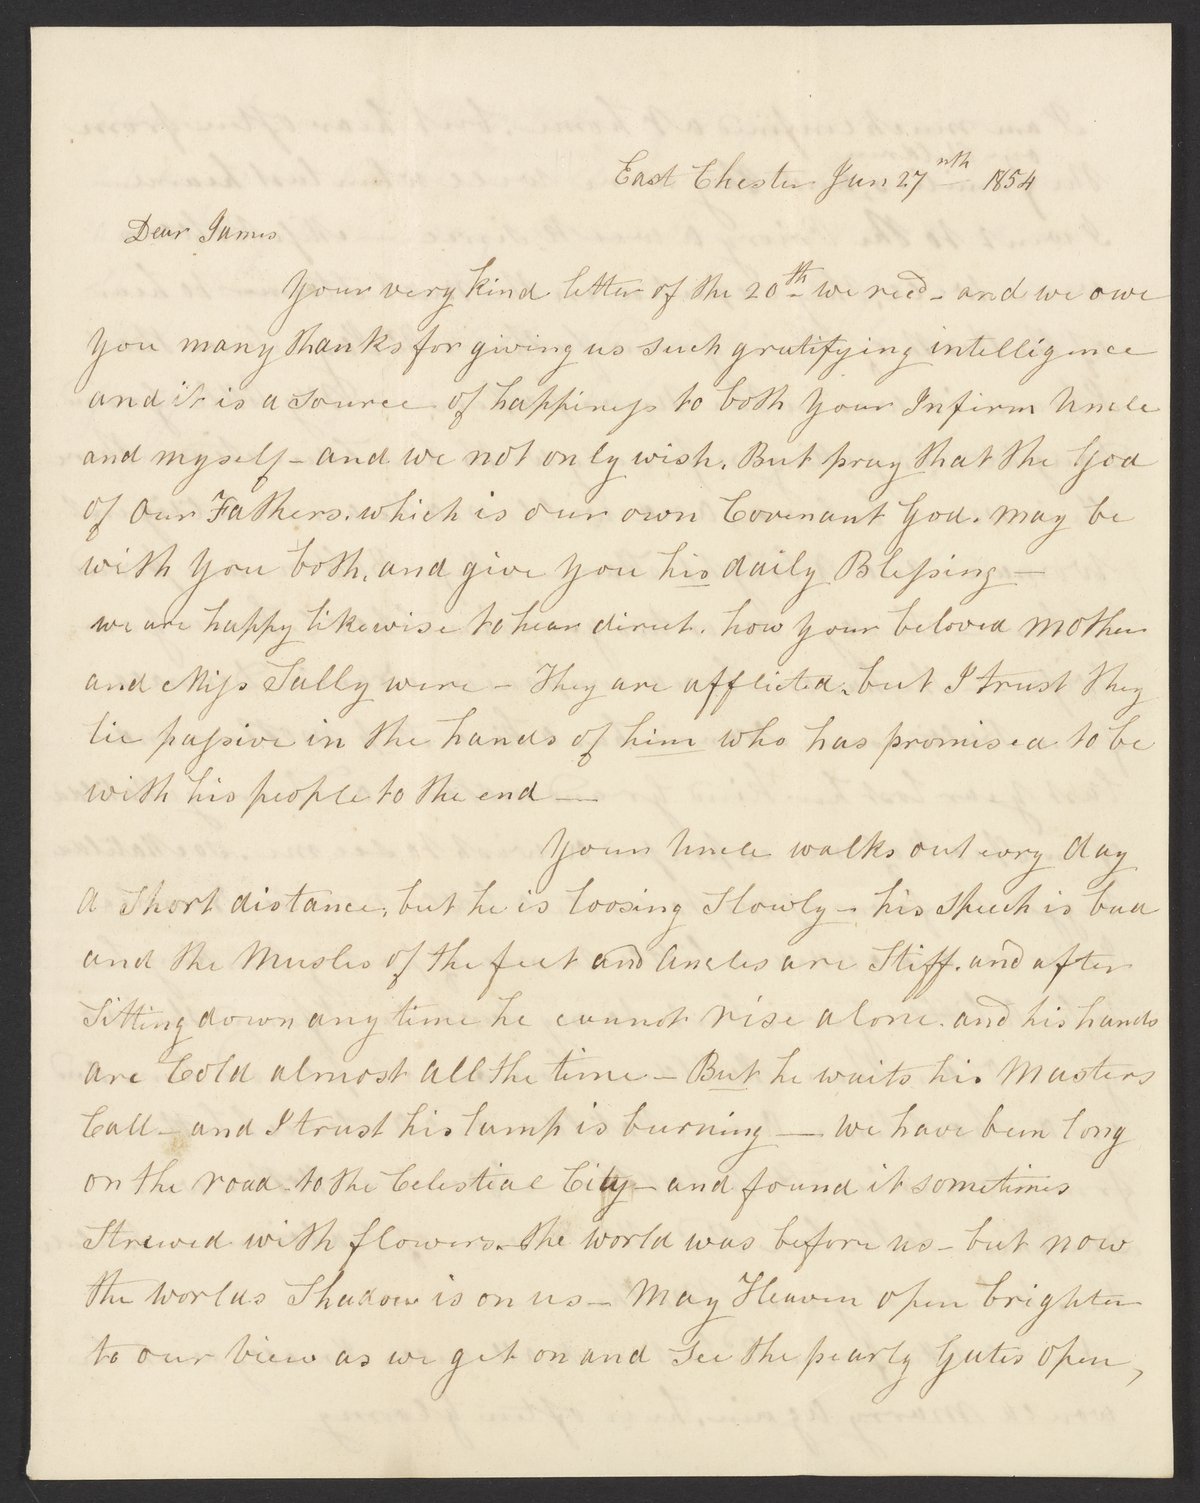 East Chester Jan 27nth 1854
Dear James
Your very kind letter of the 20th we recd - and we owe
you many thanks for giving us such gratifying intelligence
and it is a source of happiness to both your Infirm Uncle
and myself - and we not only wish, But pray that the God
of Our Fathers, which is our own Covenant God. may be
with you both, and give you his daily Blessing -
we are happy likewise to hear direct. how your beloved Mother
and Miss Sally were - They are afflicted, but I trust they
lie passive in the hands of him who has promised to be
with his people to the end -
Your Uncle walks out evry day
a Short distance, but he is loosing Slowly - his Speech is bad
and the Musles of the feet and Ancles are Stiff. and after
Sitting down any time he cannot rise alone. and his hands
are Cold almost all the time - But he waits his Masters
Call - and I trust his lamp is burning - we have been long
on the road to the Celestial City - and found it sometimes
Strewed with flowers - the world was before us - but now
the worlds Shadow is on us - May Heaven open brighter
to our view as we get on and See the pearly Gates Open,